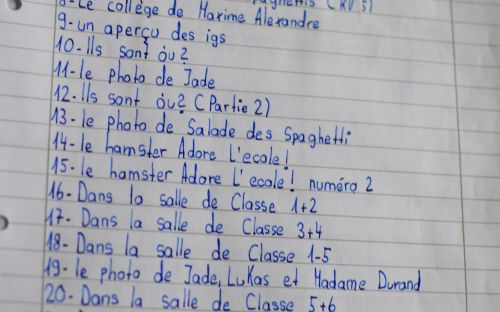 (KV 5)
8-Le collège de Maxime Alexandre
9-un aperçu des igs
10-Ils sont òu?
11-le photo de Jade
12-Ils sont òu? (Partie 2)
13-le photo de Salade des Spaghetti
14-le hamster Adore L'ecole!
15-le hamster Adore L'ecole! numéro 2
16-Dans la salle de Classe 1+2
17-Dans la salle de Classe 3+4
18-Dans la salle de Classe 1-5
19-le photo de Jade, Lukas et Madame Durand
20-Dans la salle de Classe 5+6